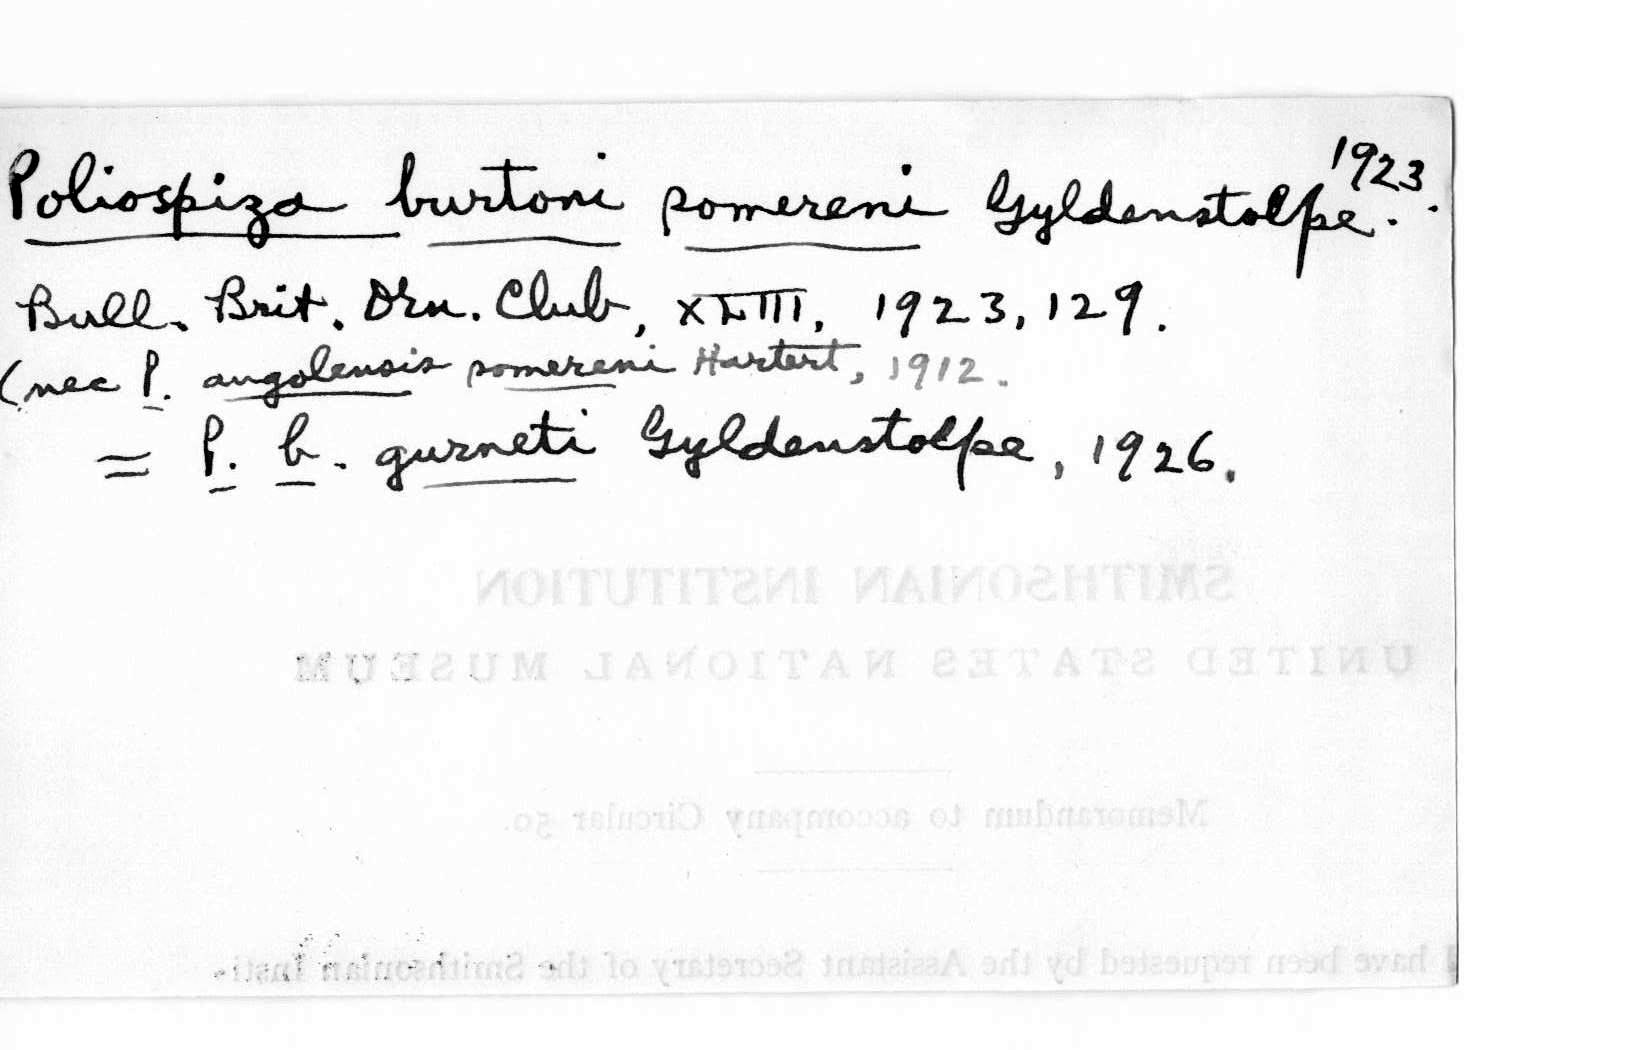 Poliospiza burtoni somereni Gyldenstolpe. 1923.
Bull. Brit. Orn. Club, XLIII, 1923, 129.
(nec P. angolensis somereni Hartert, 1912.
= P. b. gurneti Gyldenstolpe, 1926.
SMITHSONIAN INSTITUTION
UNITED STATES NATIONAL MUSEUM
Memorandum to accompany Circular 50.
I have been requested by the Assistant Secretary of the Smithsonian Insti-